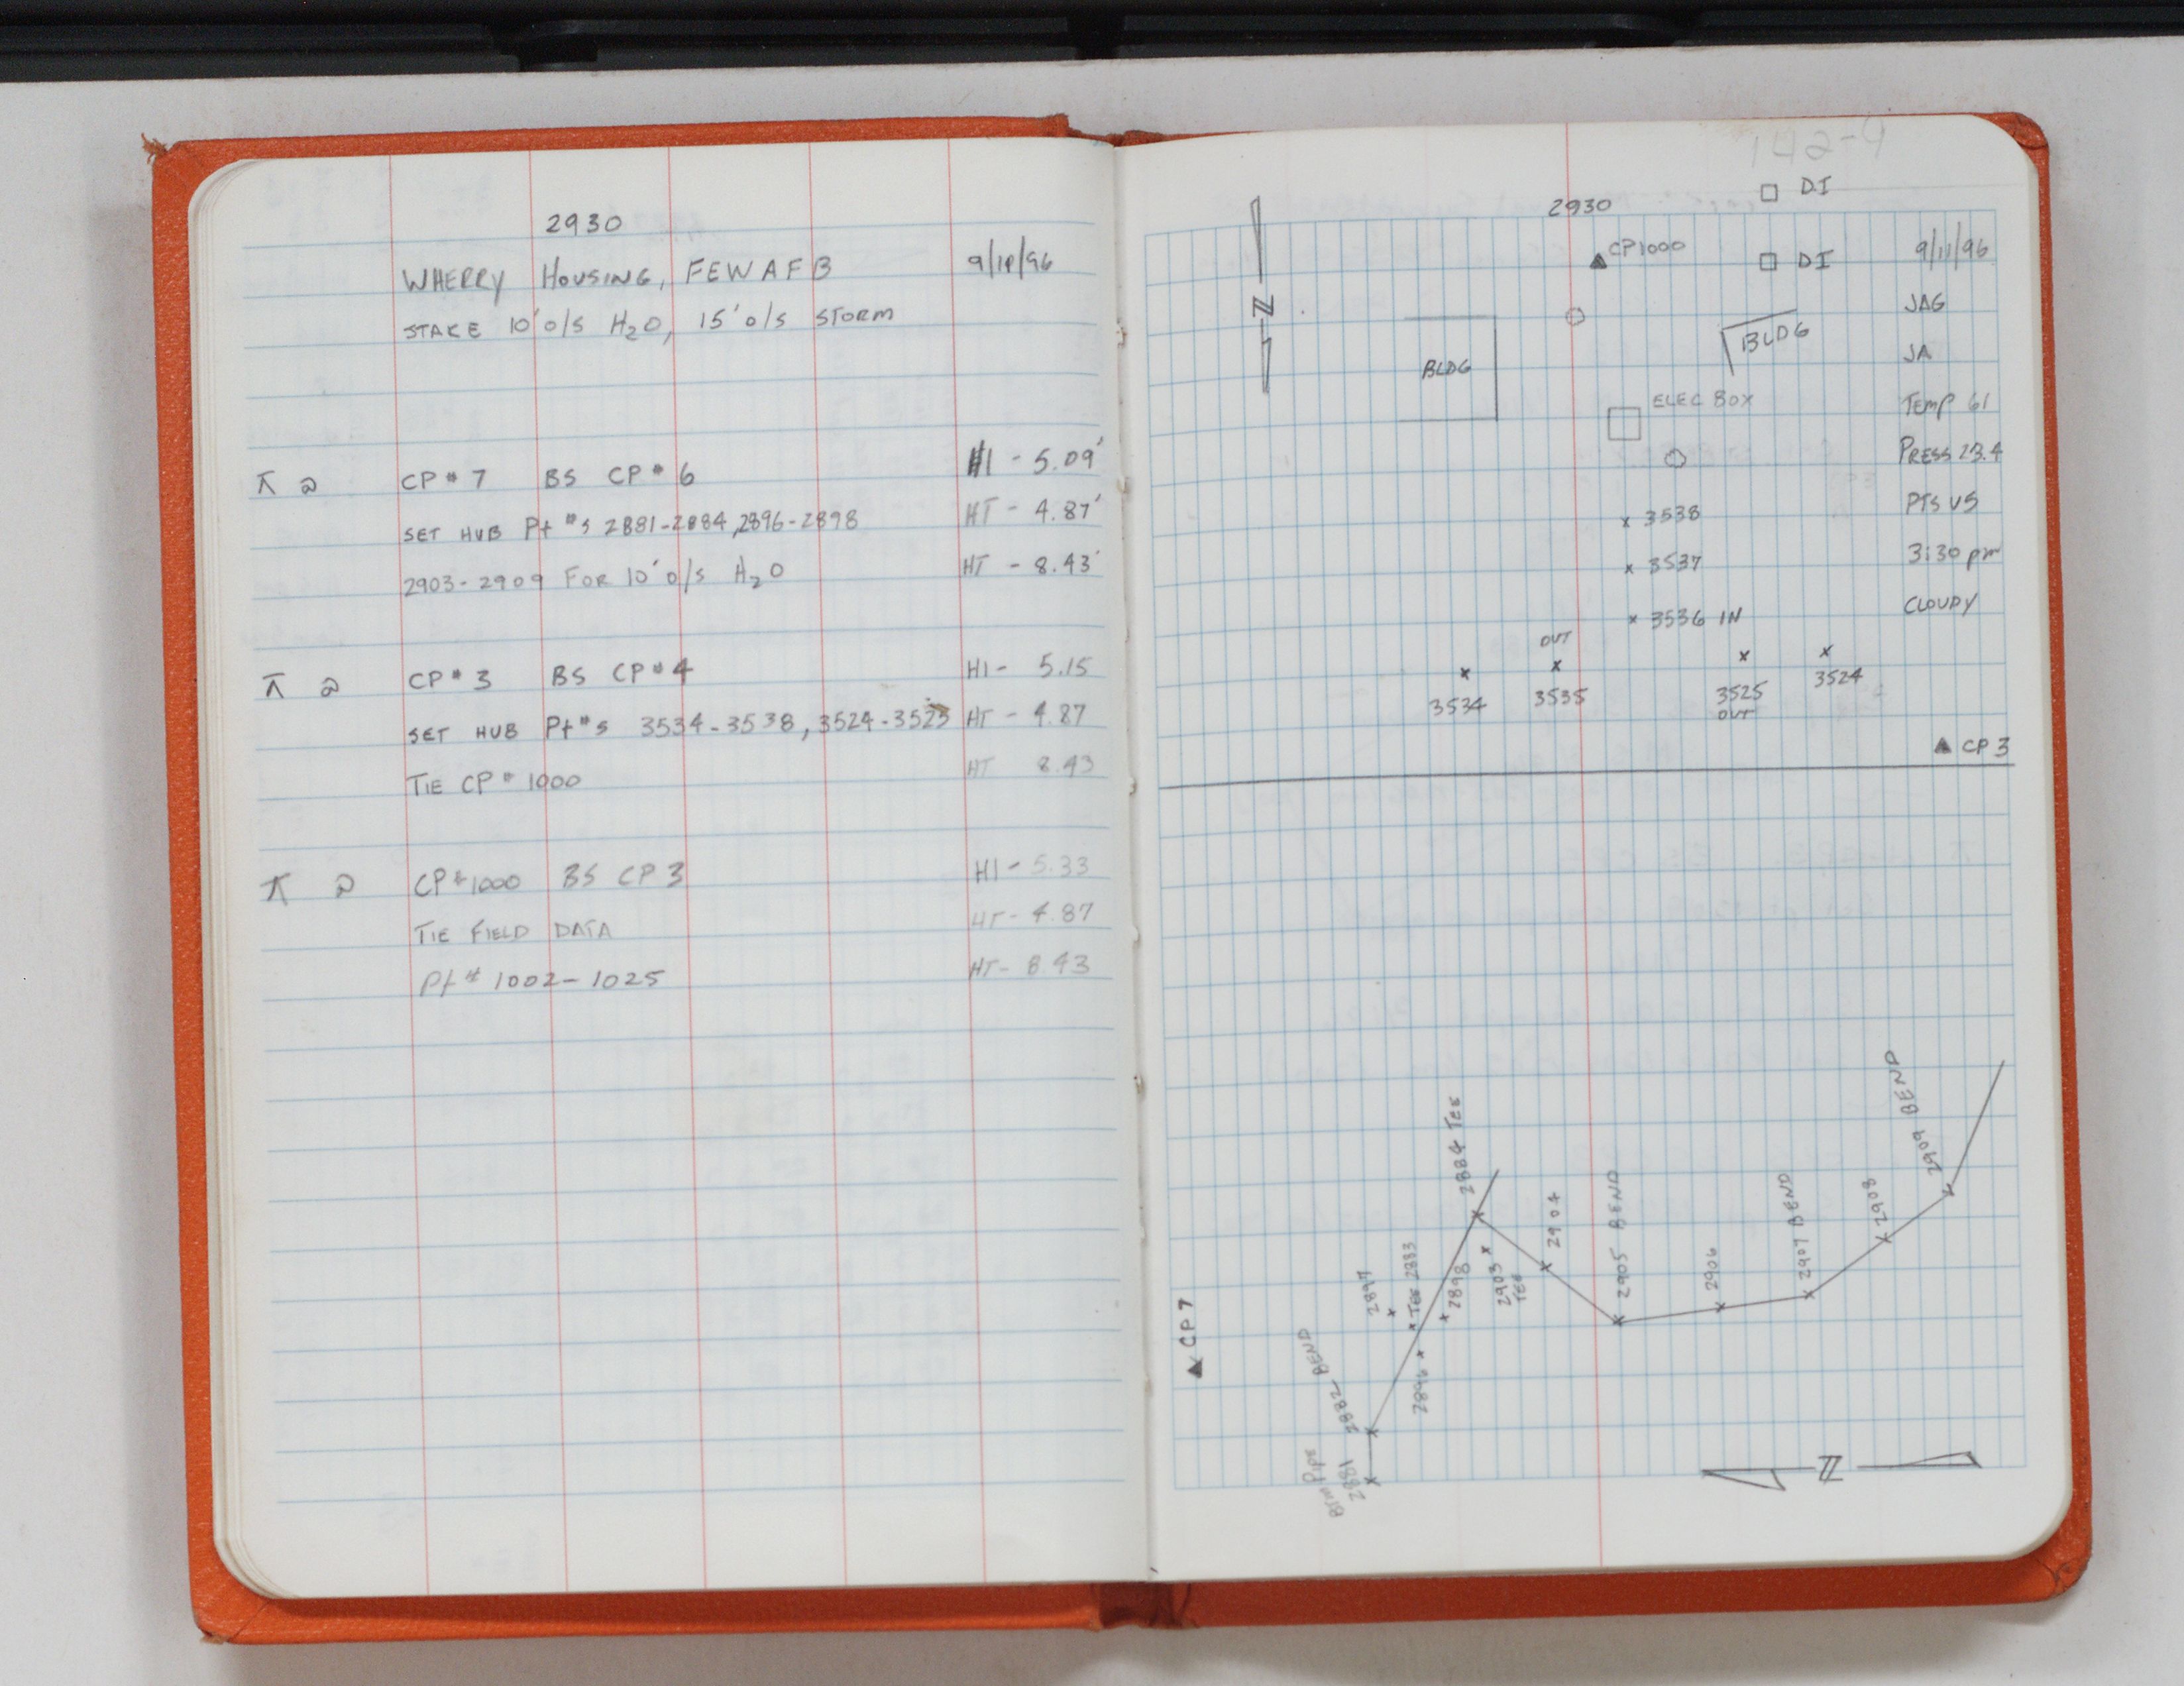 2930
WHERRY HOUSING, FEWAFB 9/11/96
STAKE 10' O/S H2O, 15' O/S STORM
⊼ @ CP#7 BS CP#6 HI - 5.09'
SET HUB Pt #'s 2881-2884, 2896-2898 HT - 4.87'
2903-2909 FOR 10' O/S H2O HT - 8.43'
⊼ @ CP#3 BS CP#4 HI - 5.15
SET HUB Pt#'s 3534-3538, 3524-3525 HT - 4.87
TIE CP# 1000 HT 8.43
⊼ @ CP#1000 BS CP3 HI - 5.33
TIE FIELD DATA HT - 4.87
Pt# 1002-1025 HT - 8.43
142-9
2930
DI
CP1000
DI
9/11/96
N
JAG
BLDG
BLDG
JA
ELEC BOX
TEMP 61
PRESS 23.4
3538
PTS VS
3537
3:30 pm
3536 IN
CLOUDY
OUT
3534
3535
3525
OUT
3524
CP3
2909 BEND
2884 TEE
2908
2904
2905 BEND
2907 BEND
2906
2897
TEE 2883
2898
2903
TEE
CP7
2896
2882 BEND
2881
N